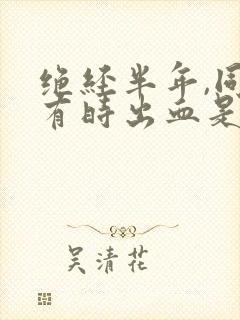 绝经半年,同
有时出血是
吴清花